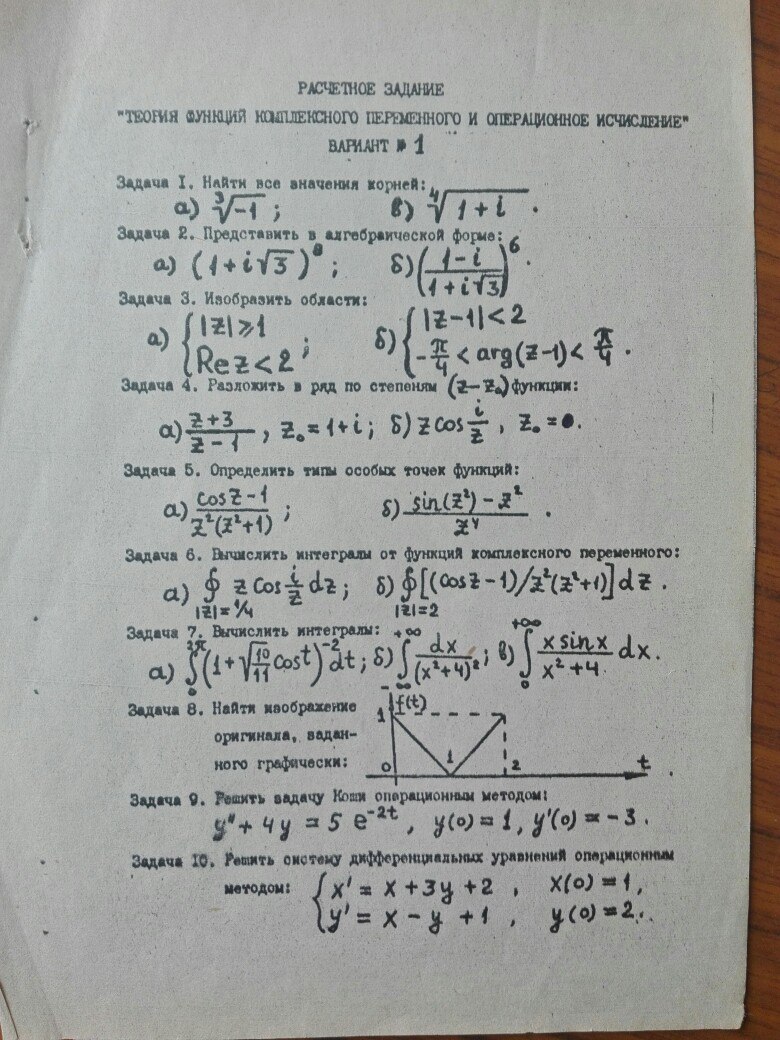 РАСЧЕТНОЕ ЗАДАНИЕ
"ТЕОРИЯ ФУНКЦИЙ КОМПЛЕКСНОГО ПЕРЕМЕННОГО И ОПЕРАЦИОННОЕ ИСЧИСЛЕНИЕ"
ВАРИАНТ № 1
Задача 1. Найти все значения корней:
а) ∛-1 ; в) ∜1+i .
Задача 2. Представить в алгебраической форме:
а) (1+i√3)⁸ ; б) ((1-i)/(1+i√3))⁶.
Задача 3. Изобразить области:
а) { |z|⩾1 ; б) { |z-1|<2
Re z < 2 -π/4 < arg(z-1) < π/4 .
Задача 4. Разложить в ряд по степеням (z-z₀) функции:
а) (z+3)/(z-1) , z₀ = 1+i ; б) z cos i/z , z₀ = 0.
Задача 5. Определить типы особых точек функций:
а) (cos z-1)/(z²(z²+1)) ; б) (sin(z²)-z²)/z⁴ .
Задача 6. Вычислить интегралы от функций комплексного переменного:
а) ∮ z cos i/z dz ; б) ∮[(cosz-1)/z²(z²+1)]dz.
|z|=1/4 |z|=2
Задача 7. Вычислить интегралы:
а) ∫₀^2π (1+√(10/11) cost)⁻²dt ; б) ∫_-∞^+∞ dx/(x²+4)² ; в) ∫₀^+∞ (x sin x)/(x²+4) dx.
Задача 8. Найти изображение
оригинала, задан-
ного графически:
f(t)
1
0 1 2 t
Задача 9. Решить задачу Коши операционным методом:
y" + 4y = 5 e^-2t , y(0) = 1, y'(0) = -3 .
Задача 10. Решить систему дифференциальных уравнений операционным
методом: { x' = x+3y+2 , x(0) = 1,
y' = x - y +1 , y(0) = 2.